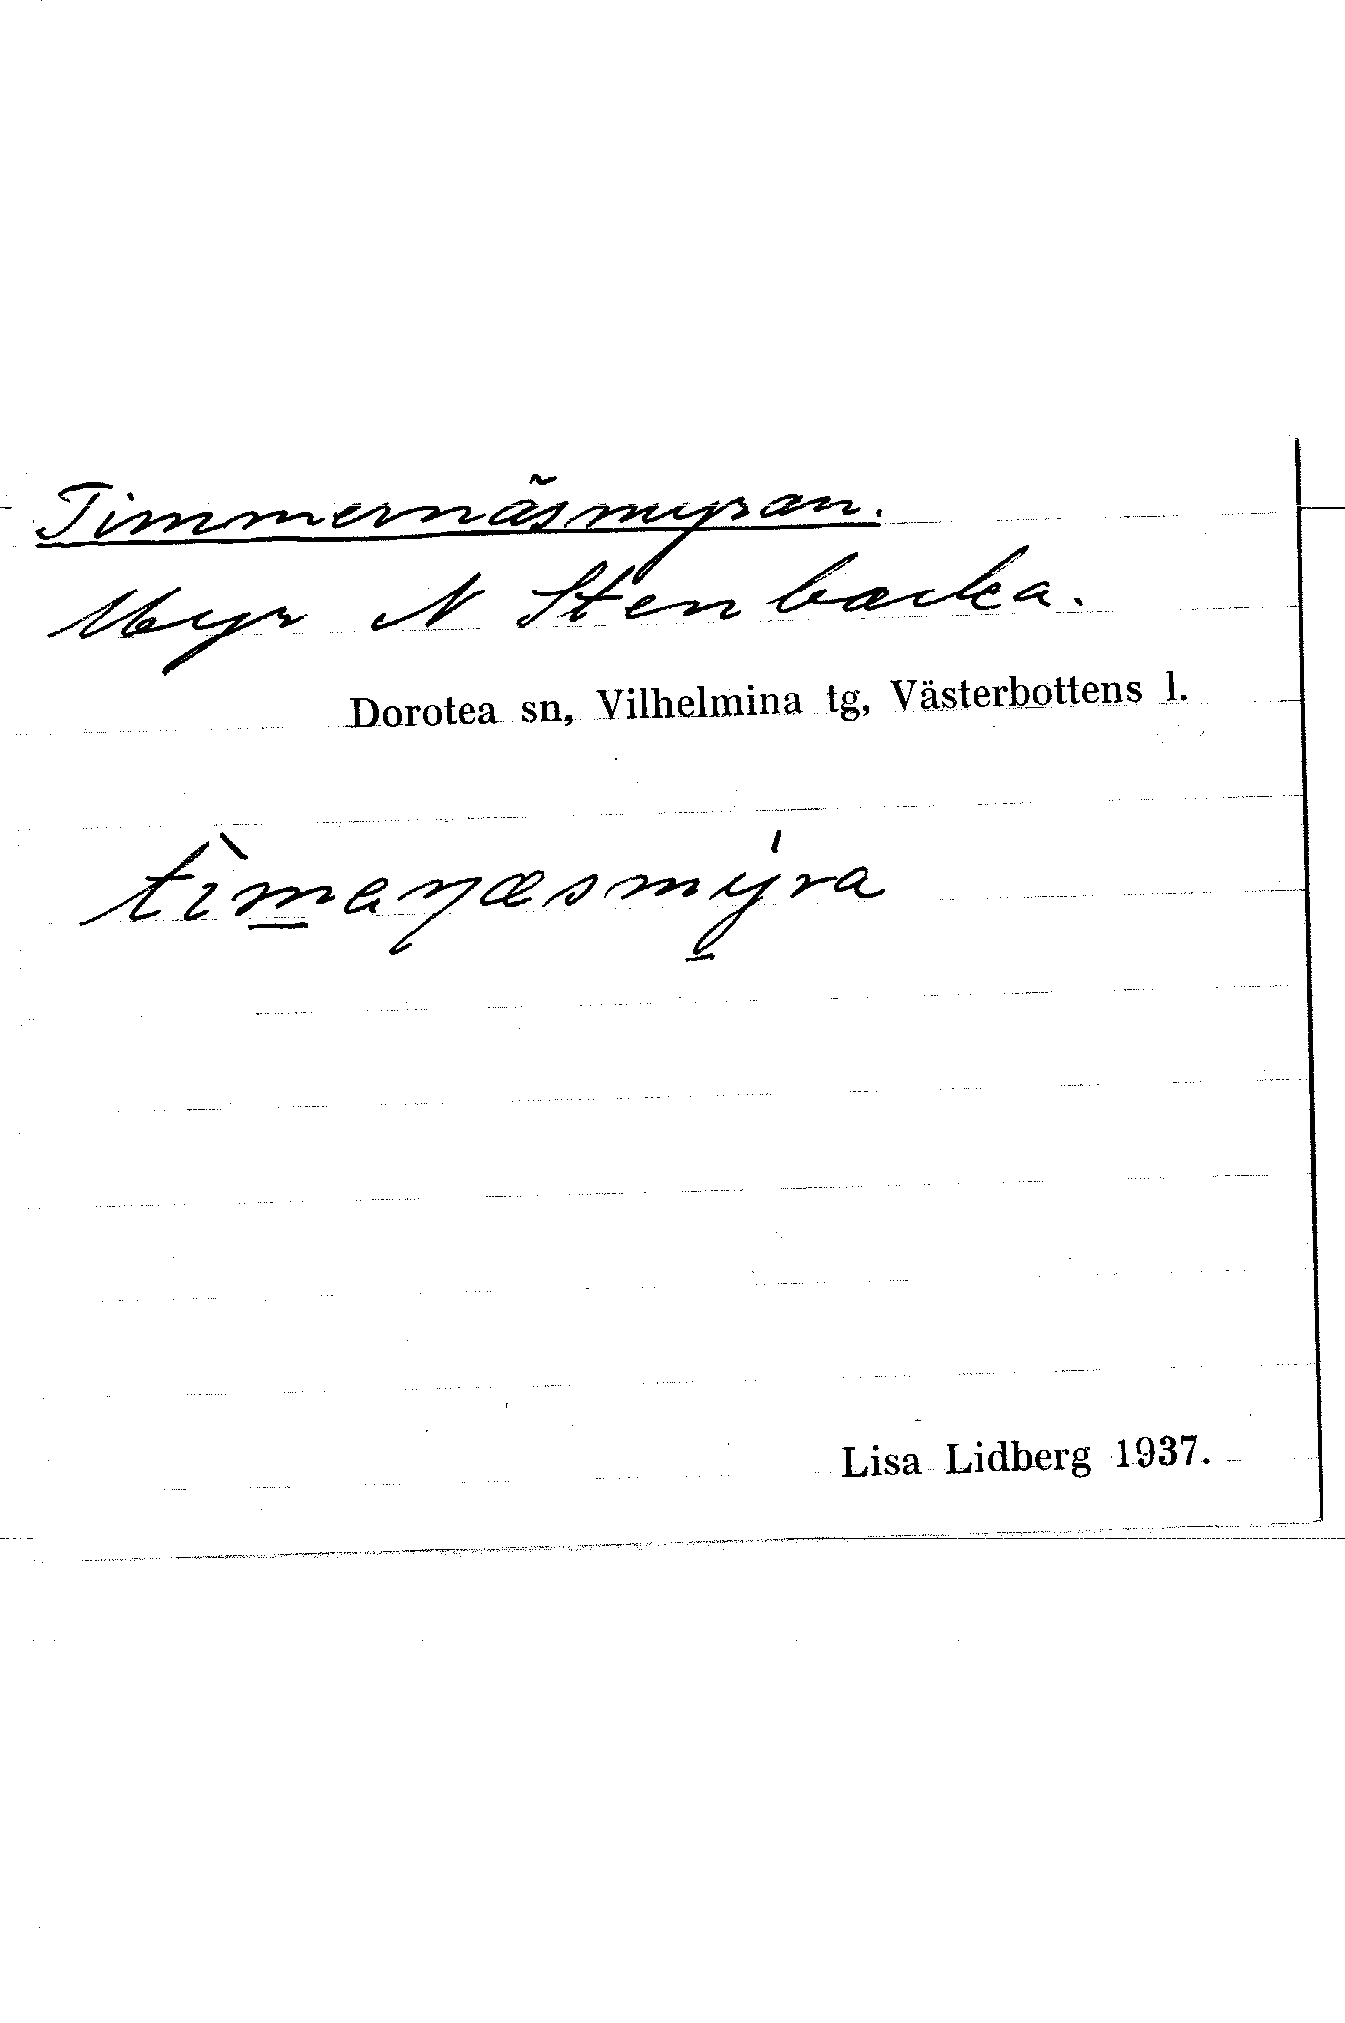 Timmernäsmyran.
Myr N Stenbacka.
Dorotea sn, Vilhelmina tg, Västerbottens l.
tìmaŋæsmýra
Lisa Lidberg 1937.